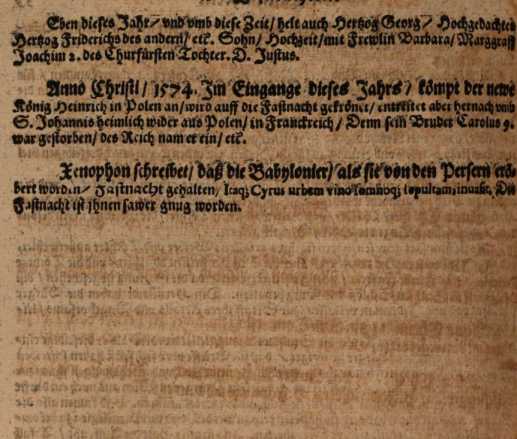 Eben dieses Jahr/ vnd vmb diese Zeit/ helt auch Hertzog Georg/ Hochgedachten
Hertzog Friderichs des andern/ etc. Sohn/ Hochzeit/ mit Frewlin Barbara/ Marggraff
Joachim 2. des Churfürsten Tochter. D. Justus.
Anno Christi/ 1574. Im Eingange dieses Jahrs/ kömpt der newe
König Heinrich in Polen an/ wird auff die Fastnacht gekrönet/ entreitet aber hernach vmb
S. Johannis heimlich wider aus Polen/ in Franckreich/ Denn sein Bruder Carolus 9.
war gestorben/ des Reich nam er ein/ etc.
Xenophon schreibet/ daß die Babylonier/ als sie von den Persern erö-
bert worden/ Fastnacht gehalten/ Itaq; Cyrus urbem vino somnoq; sepultam, invasit, Die
Fastnacht ist jhnen sawer gnug worden.